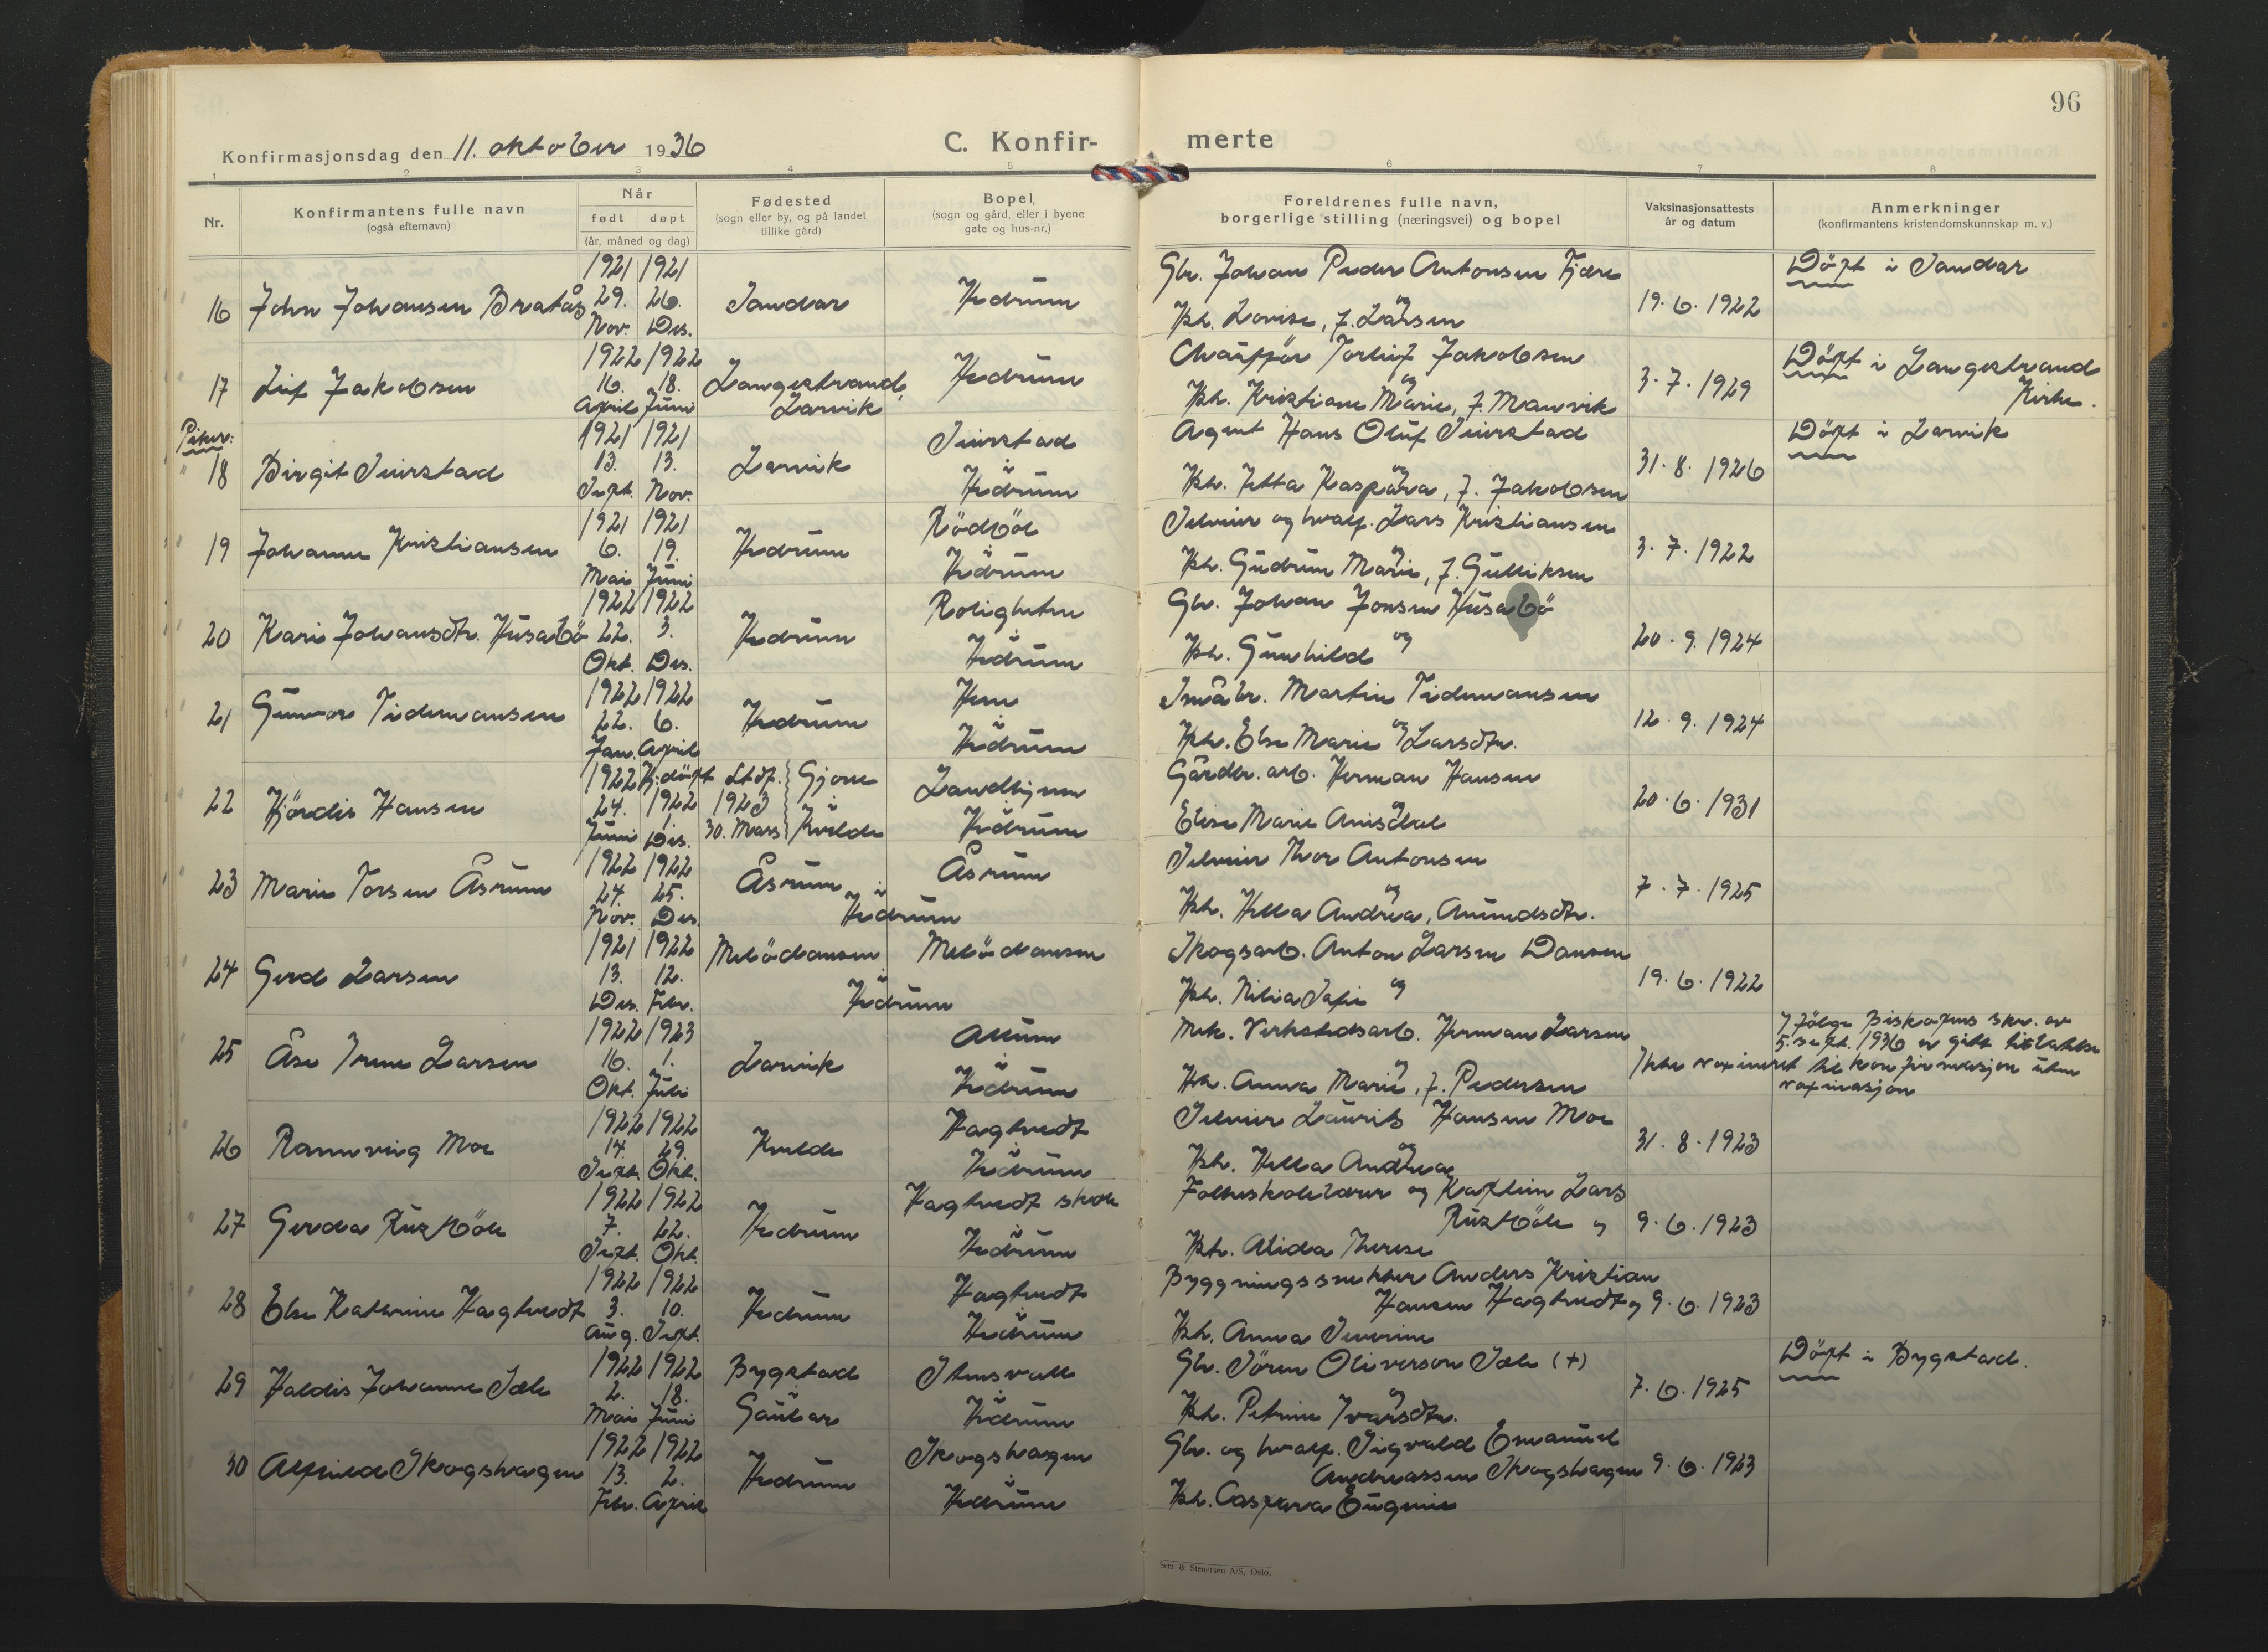 96
Konfirmasjonsdag den 11. oktober 1936
C. Konfir- merte
1 2 3 4 5 6 7 8
Nr.
Konfirmantens fulle navn
(også efternavn)
Når
født døpt
(år, måned og dag)
Fødested
(sogn eller by, og på landet
tillike gård)
Bopel
(sogn og gård, eller i byene
gate og hus-nr.)
Foreldrenes fulle navn,
borgerlige stilling (næringsvei) og bopel
Vaksinasjonsattests
år og datum
Anmerkninger
(konfirmantens kristendomskunnskap m. v.)
16 John Johansen Bratås
1921 29. Nov.
1921 26. Des.
Sandar
Hedrum
Gbr. Johan Peder Antonsen Fjære
og
Kh. Lovise, f. Larsen
19.6.1922
Döpt i Sandar
17 Leif Jakobsen
1922 16. April
1922 18. Juni
Langestrand,
Larvik
Hedrum
Chaufför Torleif Jakobsen
og
Kh. Kristiane Marie, f. Manvik
3.7.1929
Döpt i Langestrand
Kirke.
Piker:
18 Birgit Seierstad
1921 13. Sept.
1921 13. Nov.
Larvik
Seierstad
i
Hedrum
Agent Hans Oluf Seierstad
og
Kh. Jetta Kaspara, f. Jakobsen
31.8.1926
Döpt i Larvik
19 Johanne Kristiansen
1921 6. Mai
1921 19. Juni
Hedrum
Rödböl
i
Hedrum
Selveier og hvalf. Lars Kristiansen
og
Kh. Gudrun Marie, f. Gulliksen
3.7.1922
20 Kari Johansdtr. Husabö
1922 22. Okt.
1922 3. Des.
Hedrum
Roligheten
i
Hedrum
Gbr. Johan Jonsen Husabö
og
Kh. Gunhild
20.9.1924
21 Gunvor Tidemansen
1922 22. Jan.
1922 6. April
Hedrum
Hem
i
Hedrum
Småbr. Martin Tidemansen
og
Kh. Else Marie Larsdtr.
12.9.1924
22 Hjördis Hansen
1922 24. Juni
Hj.döpt 1922 1. Des.
Stdf. 1923 30. Mars
Gjone
i
Kvelde
Landbymo
i
Hedrum
Gårdbr. arb. Herman Hansen
og
Elise Marie Amisdal
20.6.1931
23 Marie Torsen Åsrum
1922 24. Nov.
1922 25. Des.
Åsrum
Åsrum
i
Hedrum
Selveier Thor Antonsen
og
Kh. Hella Andrea, Amundsdtr.
7.7.1925
24 Gerd Larsen
1921 13. Des.
1922 12. Febr.
Melödansen
Melödansen
i
Hedrum
Skogsarb. Anton Larsen Dansen
og
Kh. Nilia Sofie
19.6.1922
25 Åse Irene Larsen
1922 16. Okt.
1923 1. Juli
Larvik
Allum
i
Hedrum
Mek. Verkstedsarb. Herman Larsen
og
Kh. Anna Marie, f. Pedersen
Ikke vaxineret
Ifölge Biskopens skr. av
5. sept. 1936 er gitt tillatelse
til konfirmasjon uten
vaxinasjon
26 Rannveig Moe
1922 14. Sept.
1922 29. Okt.
Kvelde
Hagtvedt
i
Hedrum
Selveier Laurits Hansen Moe
og
Kh. Hella Andrea
31.8.1923
27 Gerda Rusböle
1922 7. Sept.
1922 22. Okt.
Hedrum
Hagtvedt skole
i
Hedrum
Folkeskolelærer og Kaptein Lars
Rusböle og
Kh. Alida Therese
9.6.1923
28 Else Kathrine Hagtvedt
1922 3. Aug.
1922 10. Sept.
Hedrum
Hagtvedt
i
Hedrum
Byggningssnekker Anders Kristian
Hansen Hagtvedt og
Kh. Anna Severine
9.6.1923
29 Haldis Johanne Sæle
1922 2. Mai
1922 18. Juni
Bygstad
i
Gaular
Stensvall
i
Hedrum
Gbr. Sören Oliverson Sæle (+)
og
Kh. Petrine Ivarsdtr.
7.6.1925
Döpt i Bygstad.
30 Alfhild Skogshagen
1922 13. Febr.
1922 2. April
Hedrum
Skogshagen
i
Hedrum
Gbr. og hvalf. Sigvald Emanuel
Andreassen Skogshagen
Kh. Caspara Eugenie
9.6.1923
Sem & Stenersen A/S, Oslo.